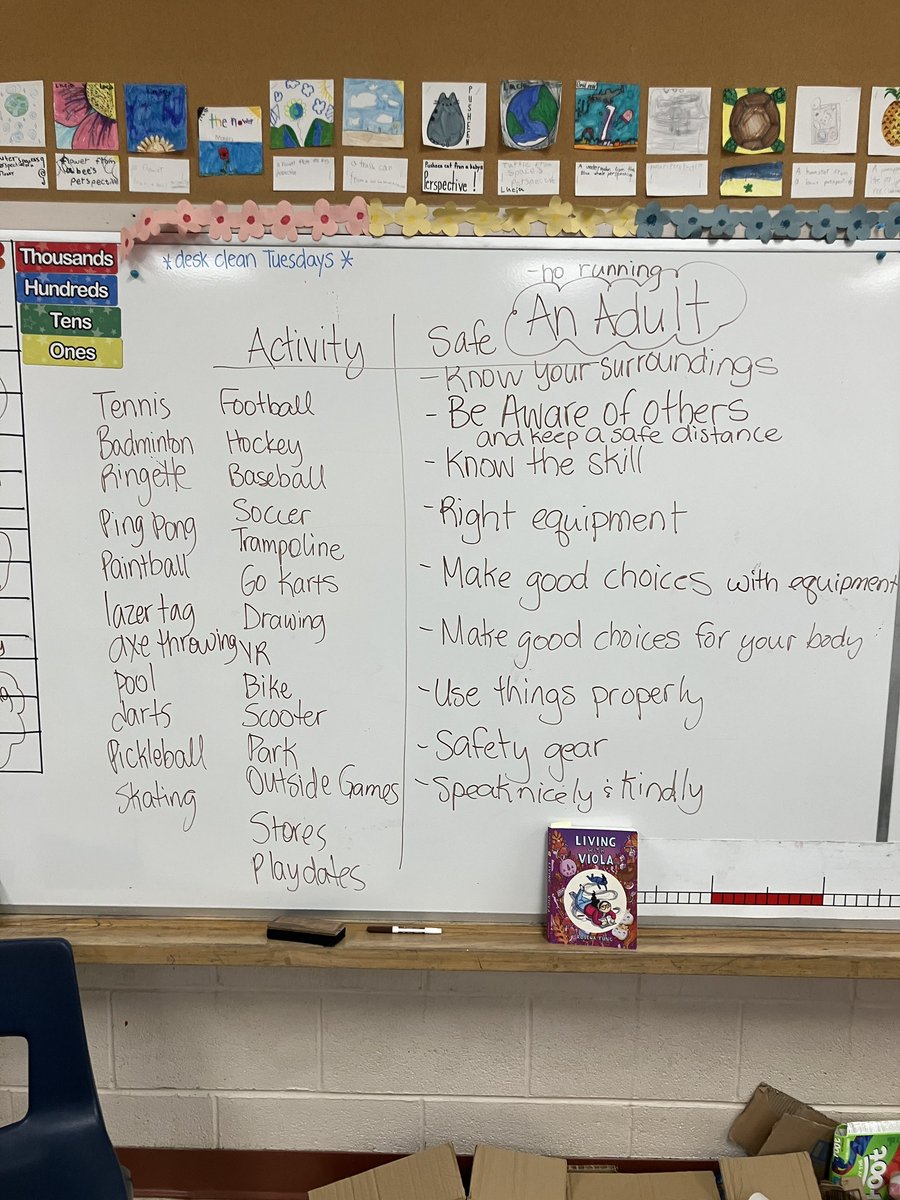 Lucia
the flower
PUSHEEN
Flower from
a bee's
perspective
Pusheen cat from a babys
Perspective!
Earth from
space's
perspective
Lucia
Thousands
Hundreds
Tens
Ones
*desk clean Tuesdays*
Activity
Tennis
Badminton
Ringette
Ping Pong
Paintball
lazer tag
axe throwing
pool
darts
Pickleball
Skating
Football
Hockey
Baseball
Soccer
Trampoline
Go Karts
Drawing
VR
Bike
Scooter
Park
Outside Games
Stores
Playdates
- no running
Safe An Adult
- Know your surroundings
- Be Aware of others
and keep a safe distance
- Know the skill
- Right equipment
- Make good choices with equipment
- Make good choices for your body
- Use things properly
- Safety gear
- Speak nicely & kindly
LIVING
WITH
VIOLA
ROSENA FUNG